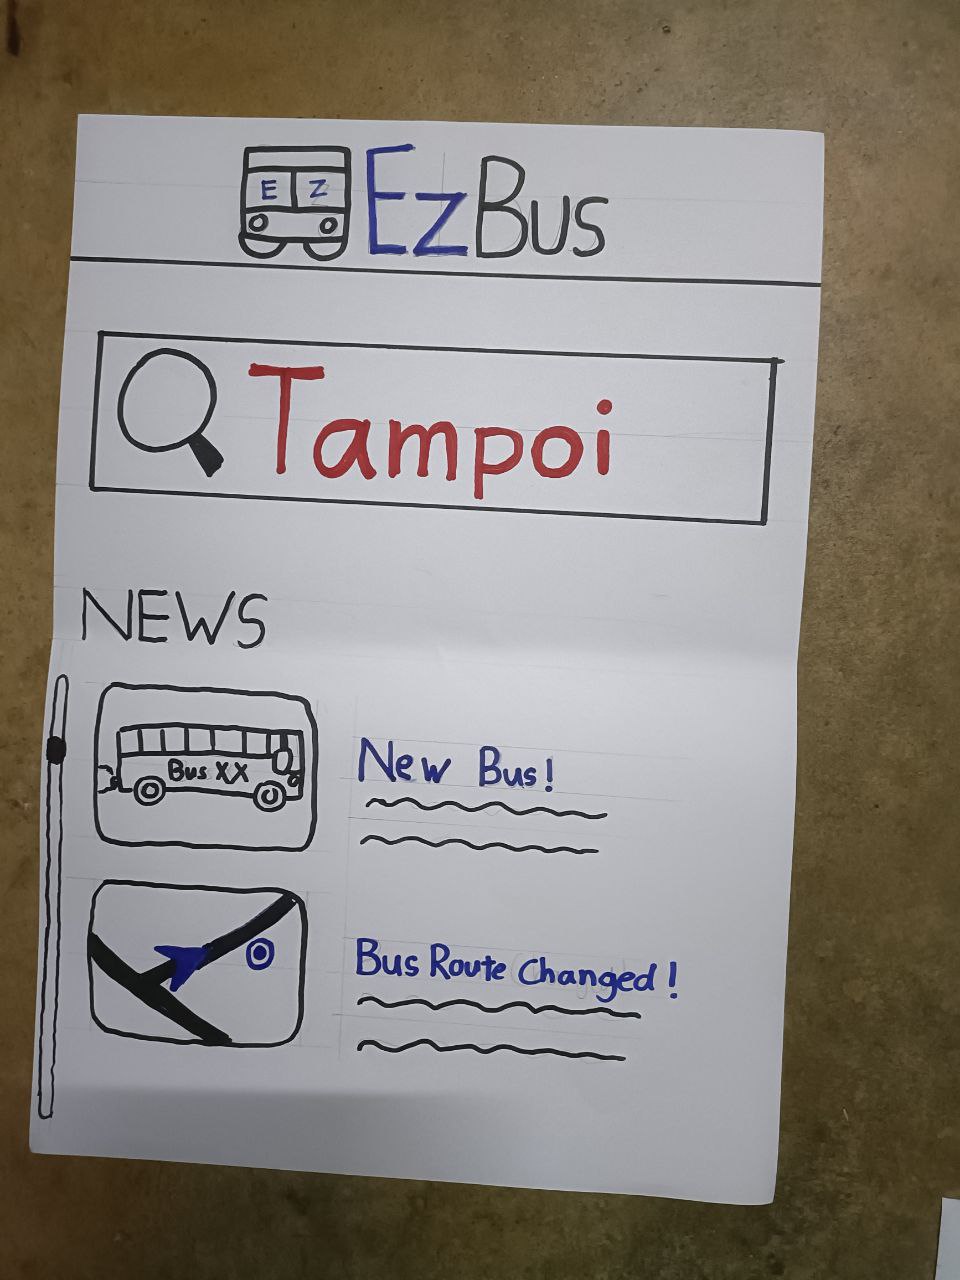 E Z EzBus
Tampoi
NEWS
Bus XX
New Bus!
Bus Route Changed!